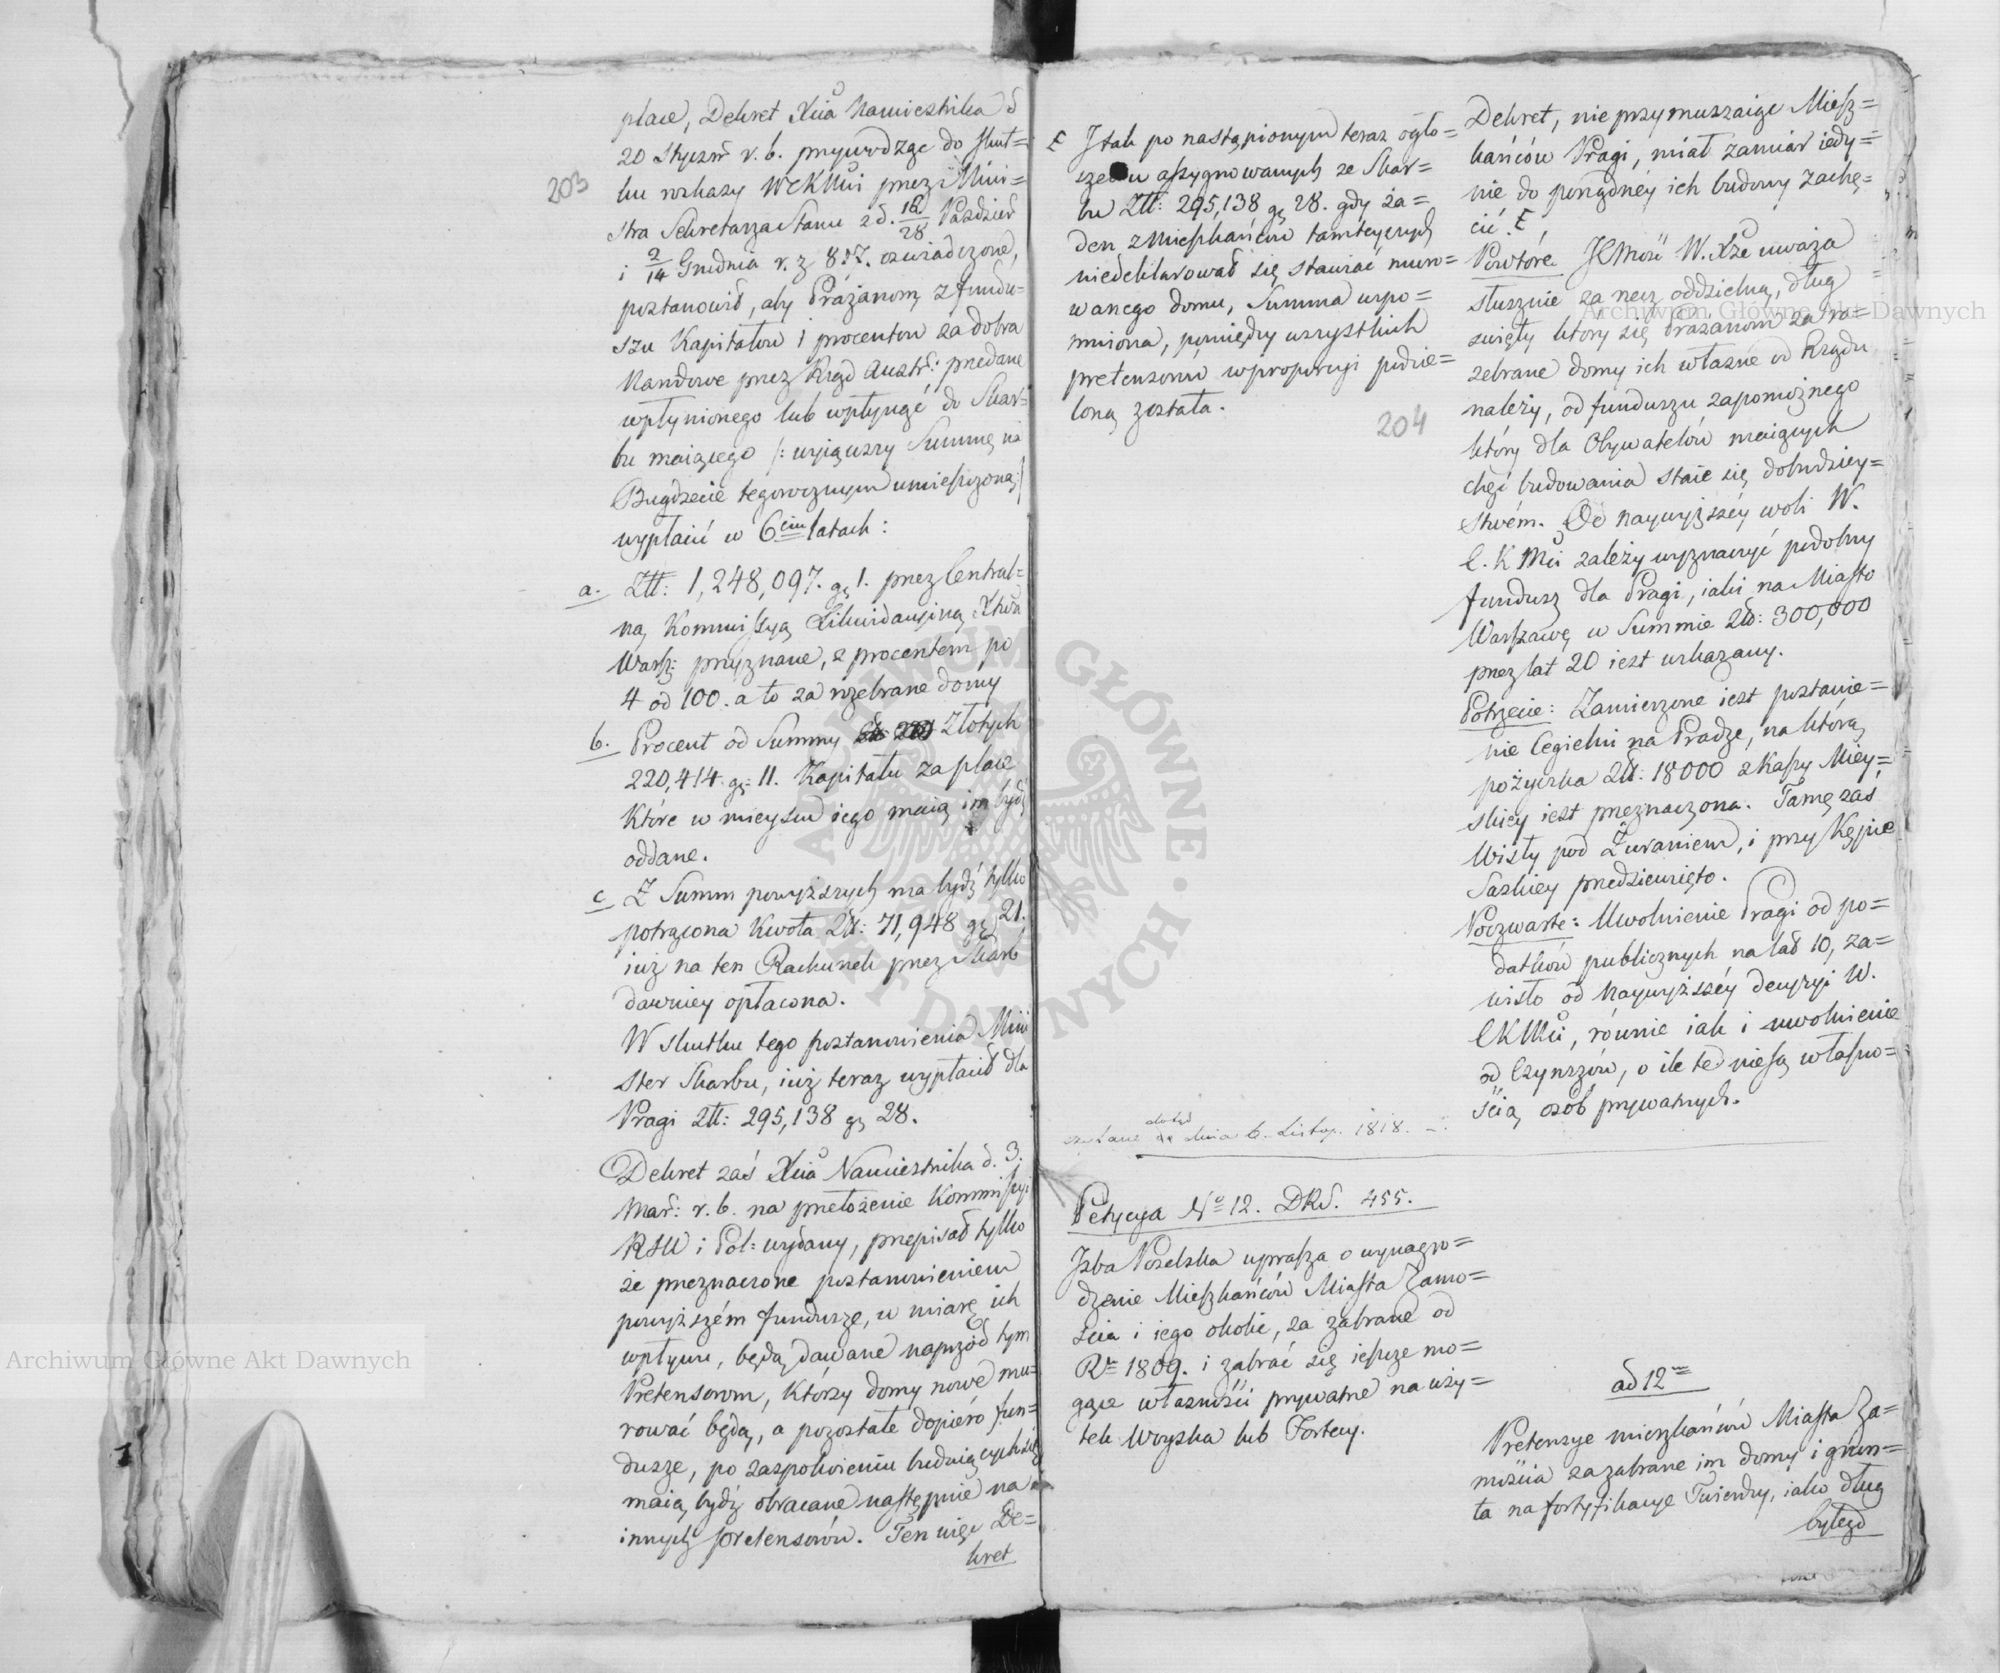 203
place, Dekret Xcia Namiestnika d.
20 Styczń r. b. przywodząc do skut=
ku rozkazy WCKMci przez Mini=
stra Sekretarza Stanu z d. 16/28 Paździer
i 2/14 Grudnia r. z. 817. oświadczone,
postanowił, aby Prażanom z fundu=
szu Kapitałow i procentow za dobra
Narodowe przez Rząd Austr: przedane
wpłynionego lub wpłynąć do Skar=
bu maiącego /: wyiąwszy Summę na
Budżecie tegorocznym umieszczoną :/
wypłacić w 6ciu latach:
a. Złł: 1,248,097. gr 1. przez Central=
ną Kommissyą Likwidacyiną Xtwa
Warsz: przyznane, z procentem po
4 od 100. a to za rozebrane domy
b. Procent od Summy Złotych
220,414. gr. 11. Kapitału za place
które w mieyscu iego maią im bydź
oddane.
c Z Summ powyższych ma bydź tylko
potrącona kwota Zł: 71,948 gr 21.
iuż na ten Rachunek przez Skarb
dawniey opłacona.
W skutku tego postanowienia Mini
ster Skarbu, iuż teraz wypłacił dla
Pragi Złł: 295,138 gr 28.
Dekret zaś Xcia Namiestnika d. 3.
Mar: r. b. na przełożenie Kommissyi
RSW i Pol: wydany, przepisał tylko
że przeznaczone postanowieniem
powyższém fundusze, w miarę ich
wpływu, będą dawane naprzód tym
Pretensorom, którzy domy nowe mu=
rować będą, a pozostałe dopiéro fun=
dusze, po zaspokoieniu buduiących się
maią bydź obracane następnie na
innych pretensorów. Ten więc De=
kret
E I tak po nastąpionym teraz ogło=
szeniu assygnowanych ze Skar=
bu Złł: 295,138 gr 28. gdy ża=
den z Mieszkańców tamteyszych
niedeklarował się stawiać muro=
wanego domu, Summa wspo=
mniona, pomiędzy wszystkich
pretensorów w proporcyi podzie=
loną została.
204
czytane dotąd dnia 6. Listop. 1818.
Petycya No 12. DRS. 455.
Izba Poselska uprasza o wynagro=
dzenie Mieszkańców Miasta Zamo=
ścia i iego okolic, za zabrane od
Ru 1809. i zabrać się ieszcze mo=
gące własności prywatne na uży=
tek Woyska lub Fortecy.
Dekret, nie przymuszaiąc Miesz=
kańców Pragi, miał zamiar iedy=
nie do porządnéy ich budowy zachę=
cić. E
Powtóre JCMość W. Xże uważa
słusznie za rzecz oddzielną, dług
święty który się Prażanom za ro=
zebrane domy ich własne od Rządu
należy, od funduszu zapomożnego
który dla Obywatelów maiących
chęć budowania staie się dobrodziey=
stwém. Od naywyższéy woli W.
C. K Mci zależy wyznaczyć podobny
fundusz dla Pragi, iaki na Miasto
Warszawę w Summie Złł: 300,000
przez lat 20 iest wskazany.
Potrzecie: Zamierzone iest postawie=
nie Cegielni na Pradze, na którą
pożyczka Złł: 18000 z Kassy Miey=
skiey iest przeznaczona. Tamę zaś
Wisły pod Żuraniem, i przy Kępie
Saskiey przedsięwzięto.
Poczwarte: Uwolnienie Pragi od po=
datków publicznych na lat 10, za=
wisło od naywyższéy decyzyi W.
CKMci, równie iak i uwolnienie
od Czynszów, o ile te nie są własno=
ścią osób prywatnych.
ad 12um
Pretensye mieszkańców Miasta Za=
mościa za zabrane im domy i grun=
ta na fortyfikacye Twierdzy, iako dług
byłego